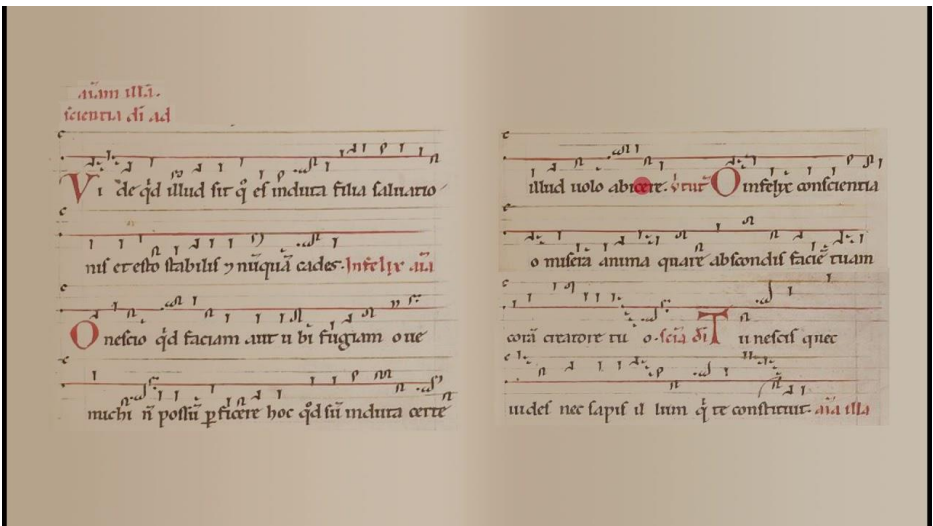 aīam illā.
scientia dī ad
Vi de qͥd illud sit qͦ es induta filia saluatio
nis et esto stabilis ⁊ nūquā cades. Infelix aīa
O nescio qͥd faciam aut u bi fugiam o ue
michi n̄ possū ꝑficere hoc qͦd sū induta certe
illud uolo abicere. v̓tut̄ O infelix conscientia
o misera anima quare abscondis faciē tuam
corā creatore tu o. sciā dī Tu nescis quec
uides nec sapis il lum q̓ te constituit. aīa illa